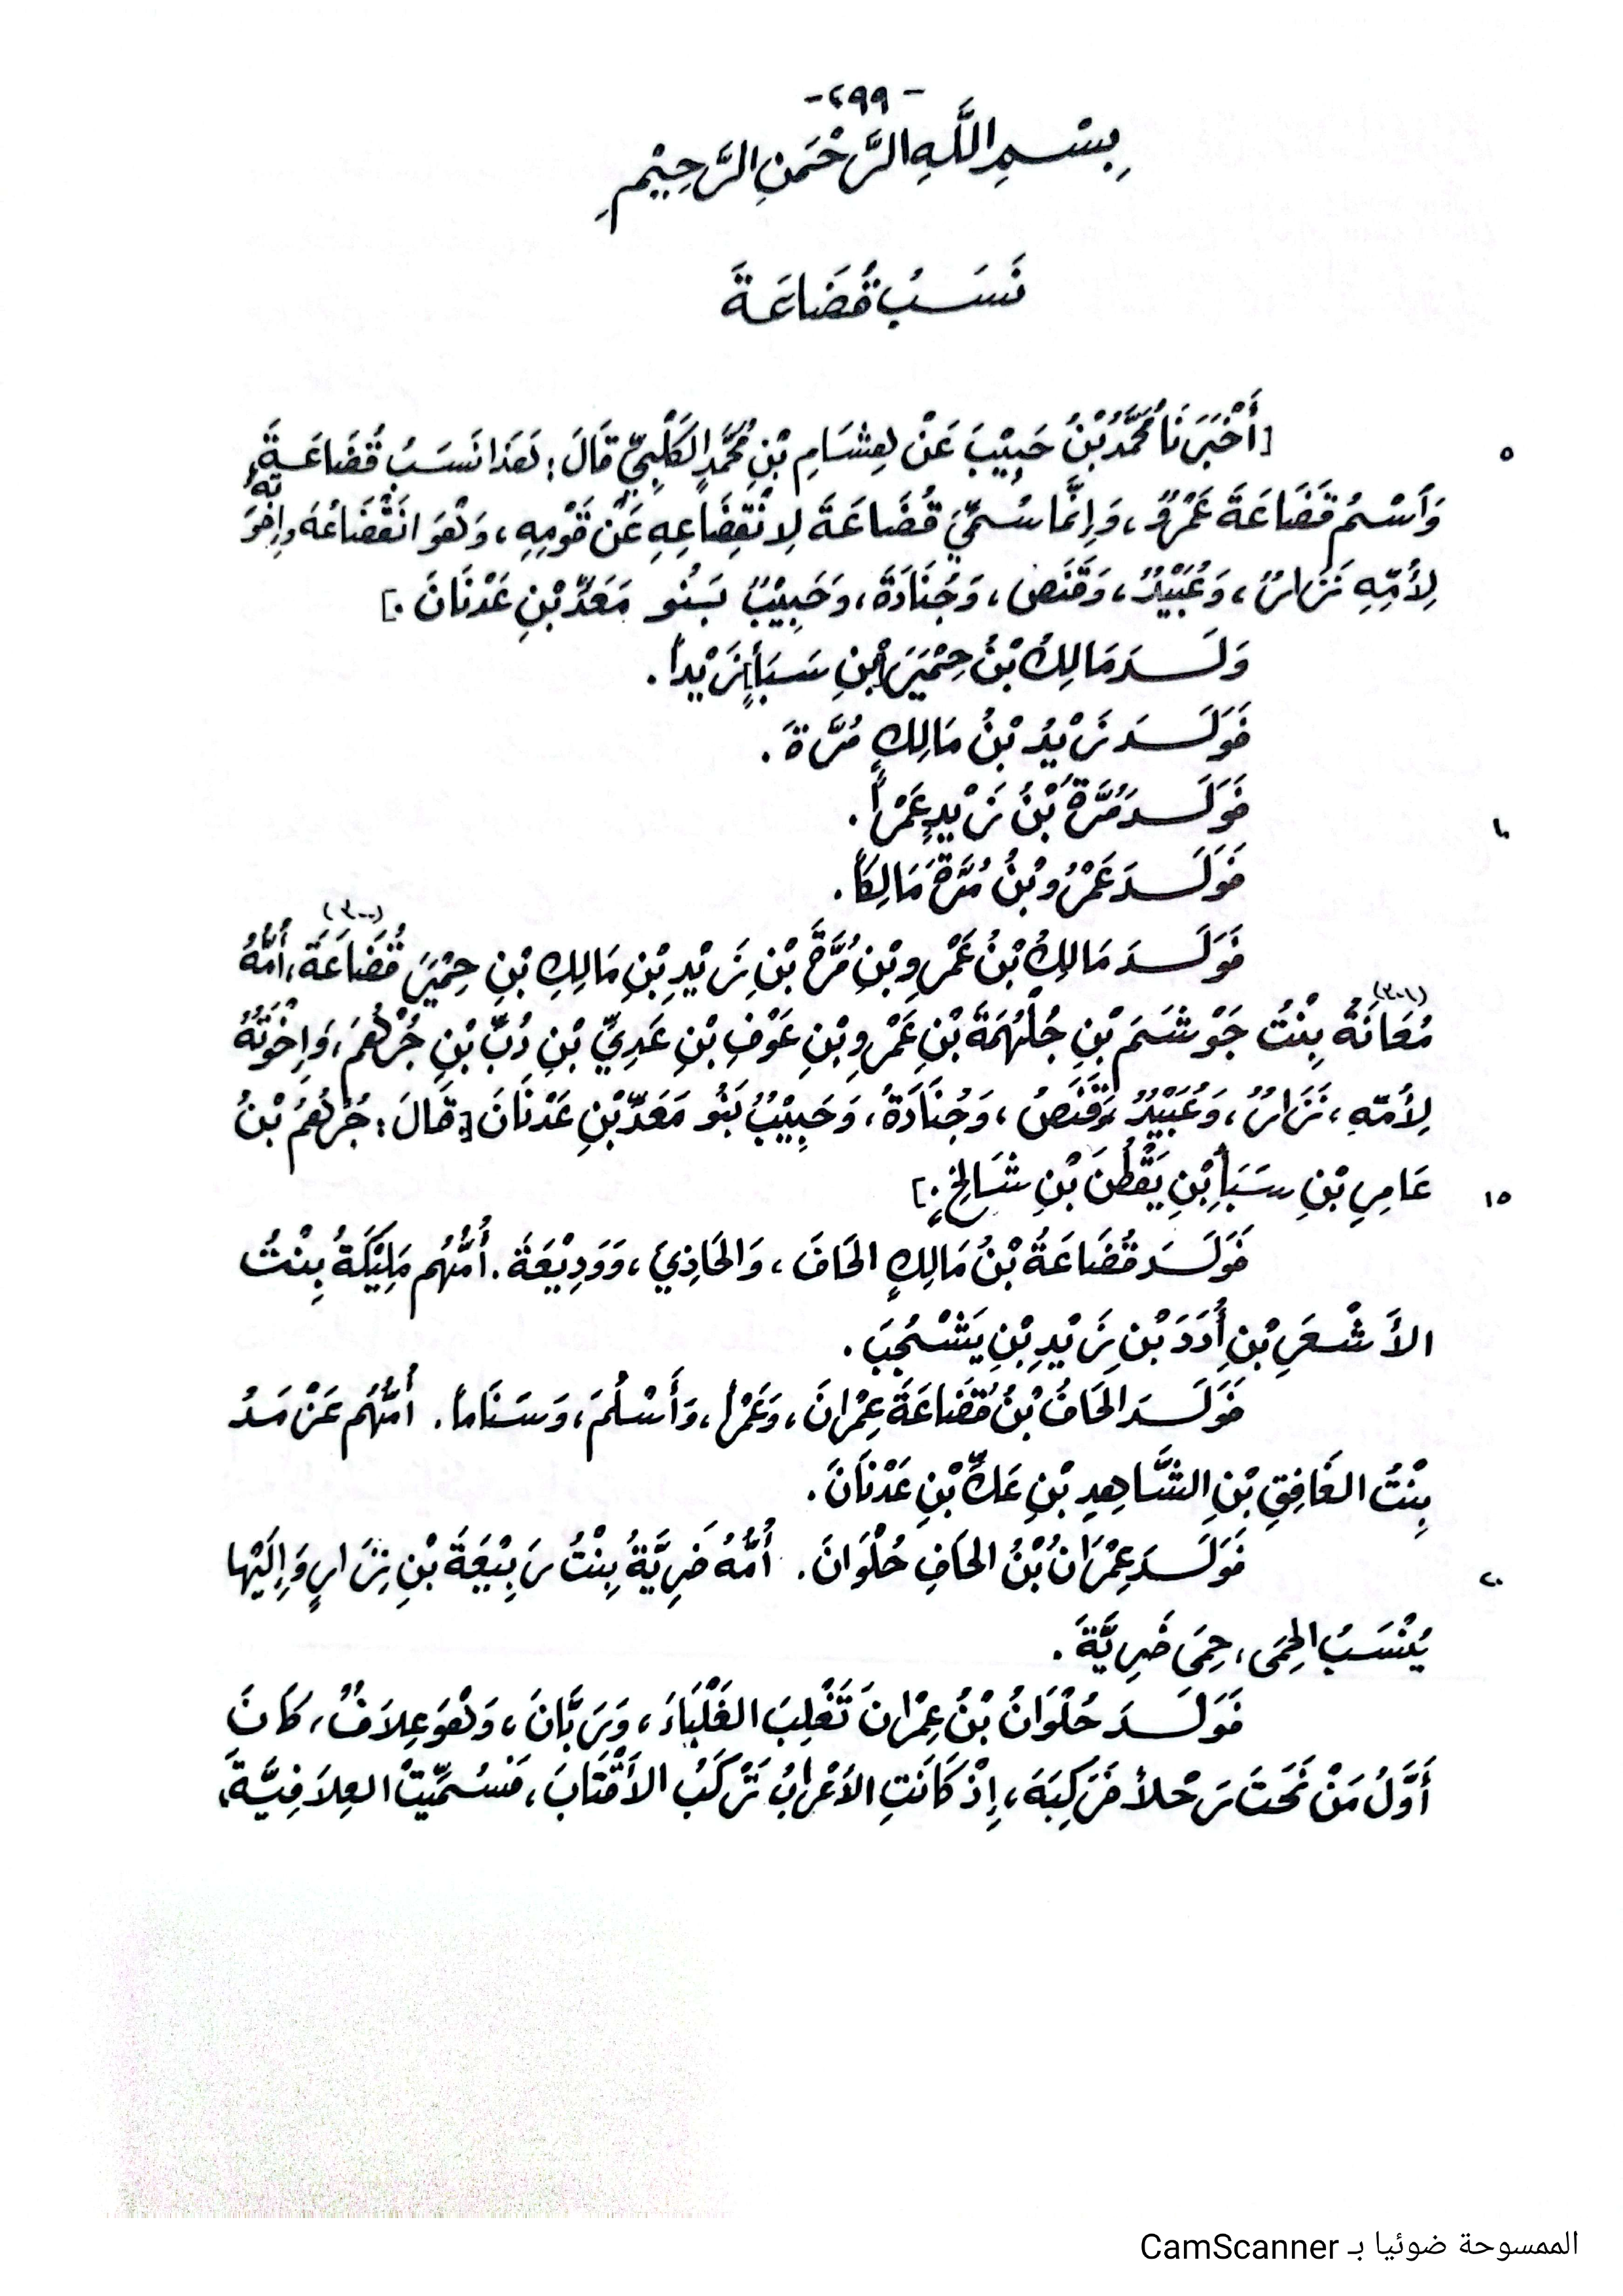 -٢٩٩-
بِسْمِ اللَّهِ الرَّحْمَنِ الرَّحِيْمِ
نَسَبُ قُضَاعَةَ
[أَخْبَرَنَا مُحَمَّدُ بْنُ حَبِيْبَ عَنْ هِشَامِ بْنِ مُحَمَّدٍ الكَلْبِيِّ قَالَ: هَذَا نَسَبُ قُضَاعَةَ، ٥
وَاسْمُ قُضَاعَةَ عَمْرٌو، وَإِنَّمَا سُمِّيَ قُضَاعَةَ لِانْقِضَاعِهِ عَنْ قَوْمِهِ، وَهُوَ انْقُضَاعُهُ وَإِخْوَتُهُ
لِأُمِّهِ نَزَارٌ، وَعُبَيْدٌ، وَقَنَصُ، وَجُنَادَةُ، وَحَبِيْبٌ بَنُو مَعَدِّ بْنِ عَدْنَانَ.]
وَلَدَ مَالِكُ بْنُ حِمْيَرَ [بْنِ سَبَأٍ] زَيْداً.
فَوَلَدَ زَيْدُ بْنُ مَالِكٍ مُرَّةَ.
فَوَلَدَ مُرَّةُ بْنُ زَيْدٍ عَمْراً. ١٠
فَوَلَدَ عَمْرُو بْنُ مُرَّةَ مَالِكاً.
فَوَلَدَ مَالِكُ بْنُ عَمْرِو بْنِ مُرَّةَ بْنِ زَيْدِ بْنِ مَالِكِ بْنِ حِمْيَرَ قُضَاعَةَ، (٣٠٠) أُمُّهُ
مُعَانَةُ (٣٠١) بِنْتُ جَوْشَمَ بْنِ جُلْهُمَةَ بْنِ عَمْرِو بْنِ عَوْفِ بْنِ عَدِيِّ بْنِ دُبِّ بْنِ جُرْهُمَ، وَإِخْوَتُهُ
لِأُمِّهِ، نَزَارٌ، وَعُبَيْدٌ وَقَنَصُ، وَجُنَادَةُ، وَحَبِيْبٌ بَنُو مَعَدِّ بْنِ عَدْنَانَ [قَالَ: جُرْهُمَ بْنُ
عَامِرِ بْنِ سَبَأِ بْنِ يَقْطُنَ بْنِ شَالِخٍ.] ١٥
فَوَلَدَ قُضَاعَةُ بْنُ مَالِكٍ الحَافَ، وَالحَاذِيَ، وَوَدِيْعَةَ. أُمُّهُم مَلِيْكَةُ بِنْتُ
الأَشْعَرِ بْنِ أُدَدَ بْنِ زَيْدِ بْنِ يَشْجُبَ.
فَوَلَدَ الحَافُ بْنُ قُضَاعَةَ عِمْرَانَ، وَعَمْراً، وَأَسْلُمَ، وَسَنَاماً. أُمُّهُم عَرْمَدُ
بِنْتُ الغَافِقِ بْنِ الشَّاهِدِ بْنِ عَكِّ بْنِ عَدْنَانَ.
فَوَلَدَ عِمْرَانُ بْنُ الحَافِ حُلْوَانَ. أُمُّهُ ضَرِيَّةُ بِنْتُ رَبِيْعَةَ بْنِ نِزَارٍ وَإِلَيْهَا ٢٠
يُنْسَبُ الحِمَى، حِمَى ضَرِيَّةَ.
فَوَلَدَ حُلْوَانُ بْنُ عِمْرَانَ تَغْلِبَ الغَلْبَاءَ، وَرَبَّانَ، وَهُوَ عِلاَفٌ، كَانَ
أَوَّلُ مَنْ نَحَتَ رَحْلاً فَرَكِبَهُ، إِذْ كَانَتِ الأَعْرَابُ تَرْكَبُ الأَقْتَابَ، فَسُمِّيَتْ العِلاَفِيَّةَ،
الممسوحة ضوئيا بـ CamScanner